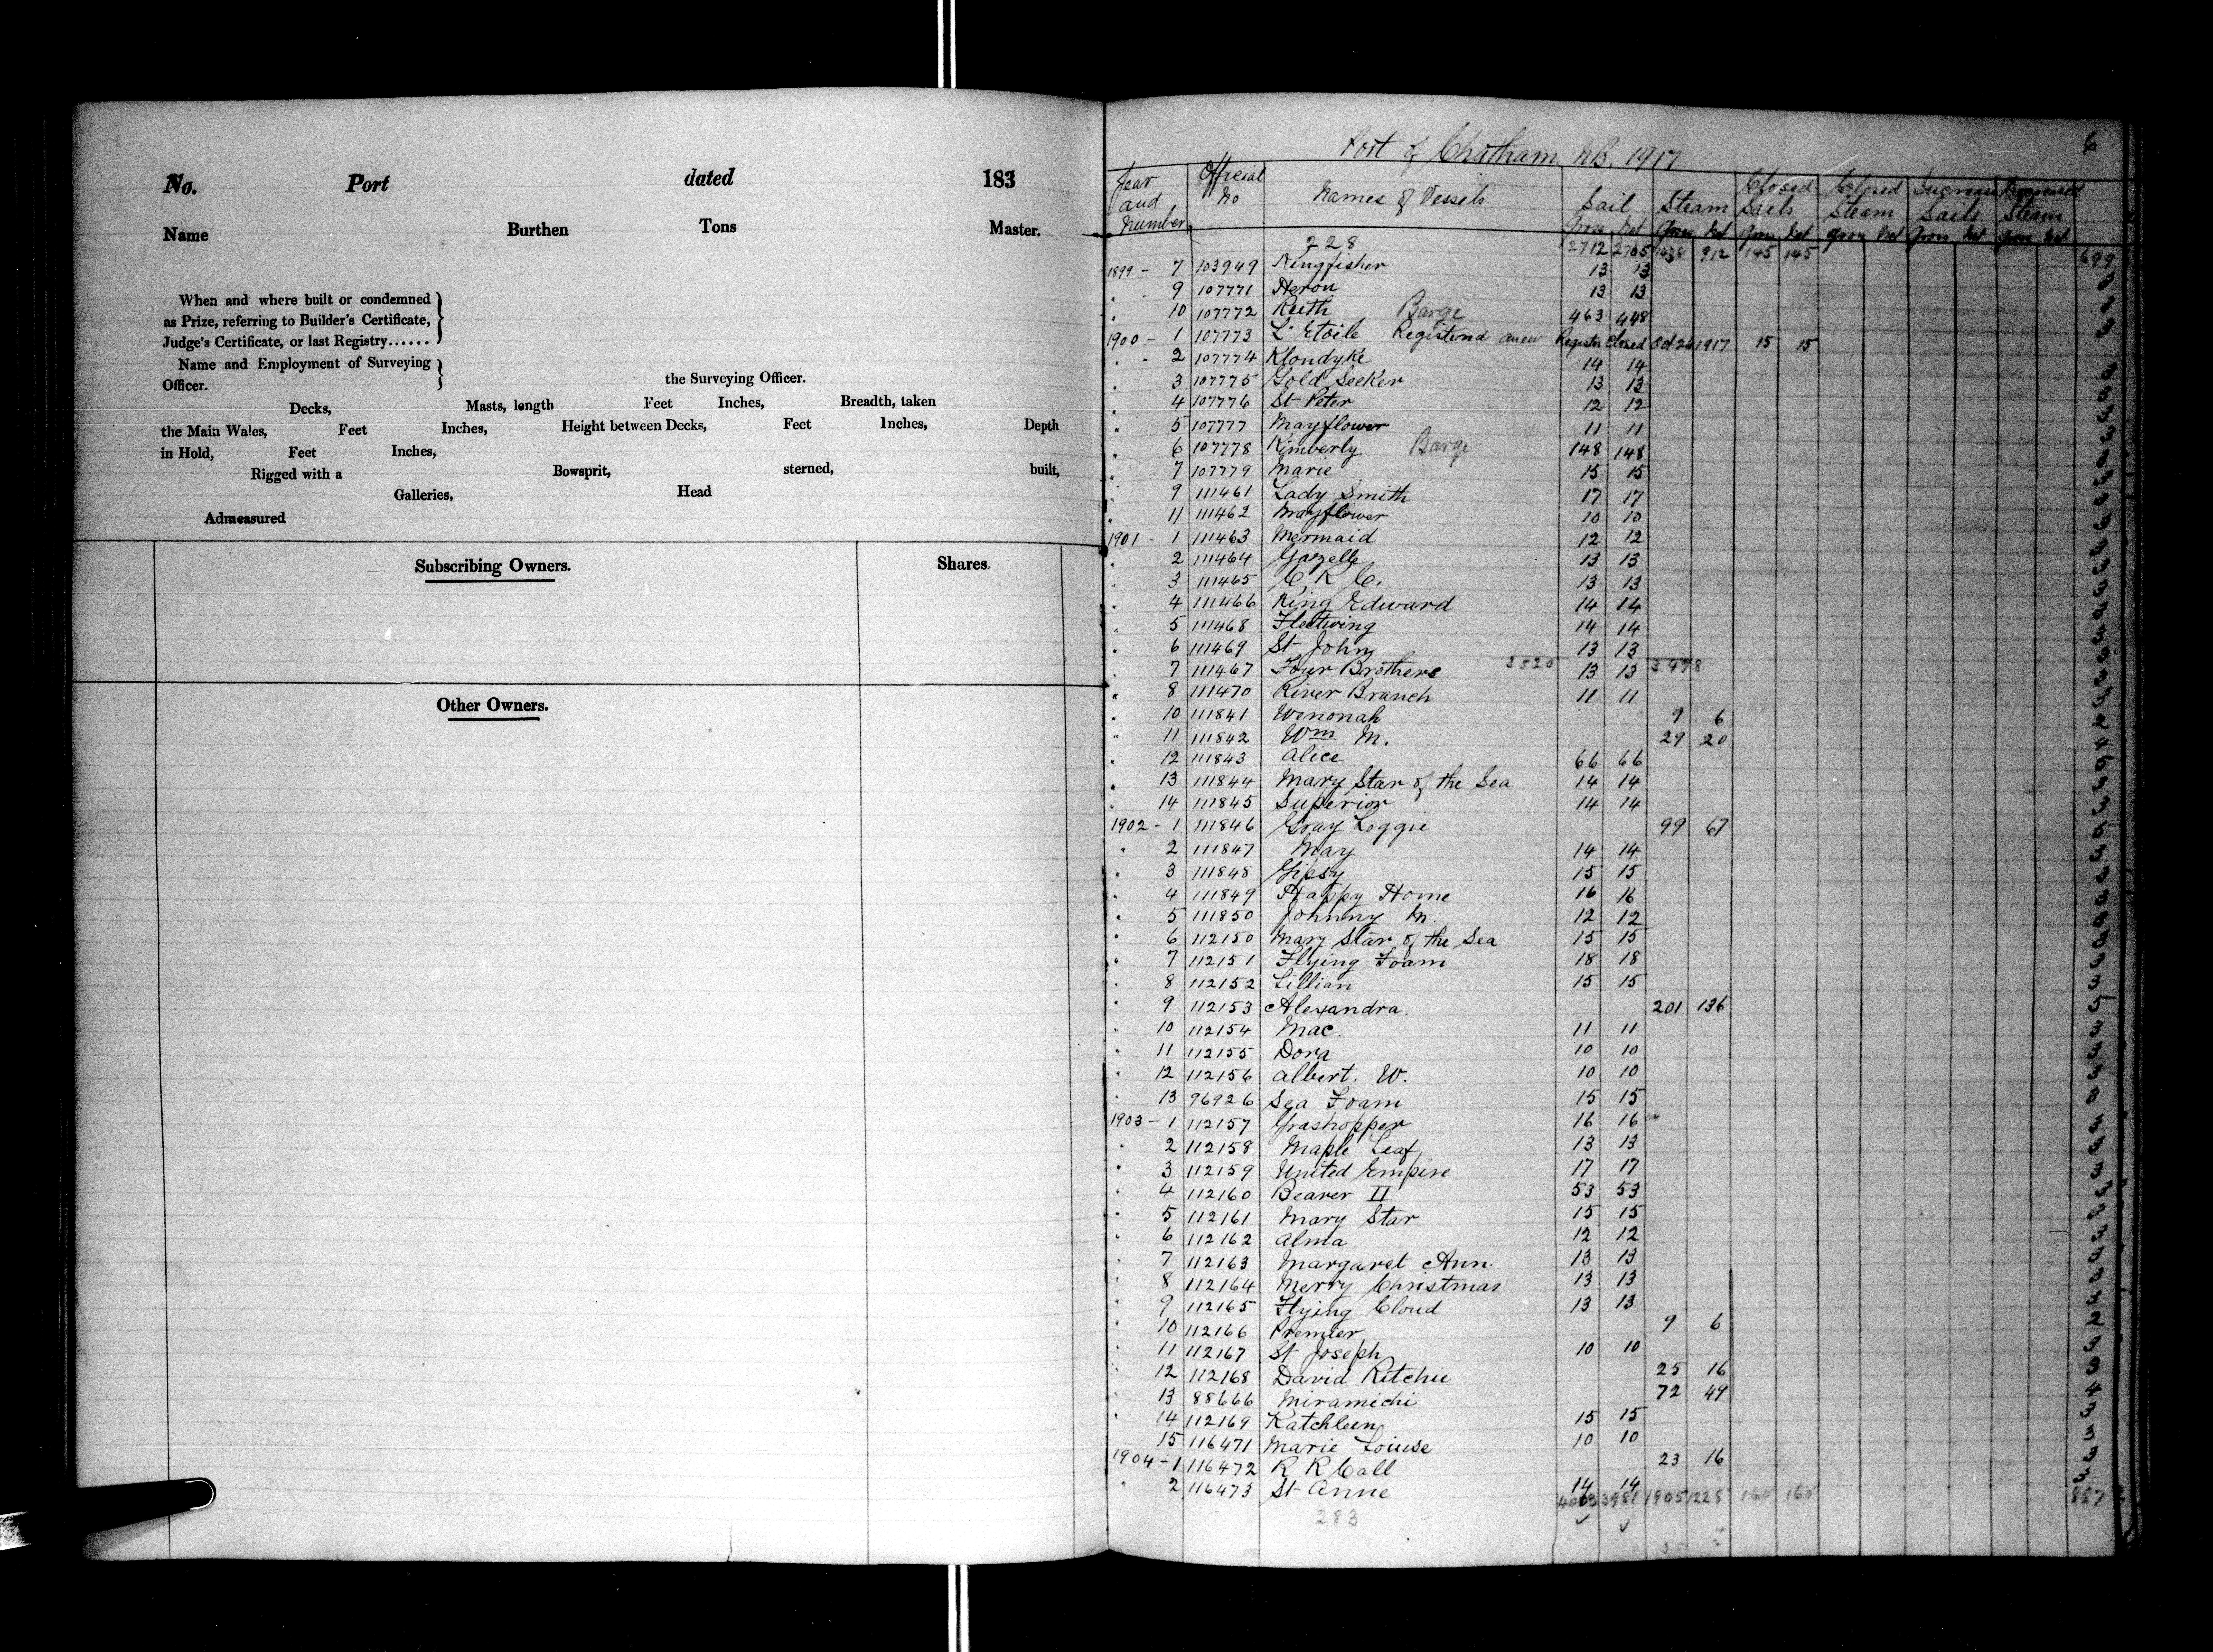 No. Port dated 183
Name Burthen Tons Master.
When and where built or condemned
as Prize, referring to Builder's Certificate,
Judge's Certificate, or last Registry......
Name and Employment of Surveying
Officer. the Surveying Officer.
Decks, Masts, length Feet Inches, Breadth, taken
the Main Wales, Feet Inches, Height between Decks, Feet Inches, Depth
in Hold, Feet Inches,
Rigged with a Bowsprit, sterned, built,
Galleries, Head
Admeasured
Subscribing Owners. Shares.
Other Owners.
6
Port of Chatham N.B. 1917
Year and Number Official No Names of Vessels Sail Steam Closed Sails Closed Steam Increase Sails Decreased Steam
Gross Net Gross Net Gross Net Gross Net Gross Net Gross Net
228 2712 2705 1438 912 145 145 699
1899 - 7 103949 Kingfisher 13 13 3
" 9 107771 Heron 13 13 3
" 10 107772 Ruth Barge 463 448 3
1900 - 1 107773 L'Etoile Registered anew Register Closed Oct 26 1917 15 15
" - 2 107774 Klondyke 14 14 3
" 3 107775 Gold Seeker 13 13 3
" 4 107776 St Peter 12 12 3
" 5 107777 Mayflower 11 11 3
" 6 107778 Kimberly Barge 148 148 3
" 7 107779 Marie 15 15 3
" 9 111461 Lady Smith 17 17 3
" 11 111462 Mayflower 10 10 3
1901 - 1 111463 Mermaid 12 12 3
" 2 111464 Gazelle 13 13 3
" 3 111465 C. K. C. 13 13 3
" 4 111466 King Edward 14 14 3
" 5 111468 Fleetwing 14 14 3
" 6 111469 St John 13 13 3
" 7 111467 Four Brothers 3520 13 13 3498 3
" 8 111470 River Branch 11 11 3
" 10 111841 Wenonah 9 6
" 11 111842 Wm M. 29 20 4
" 12 111843 Alice 66 66
" 13 111844 Mary Star of the Sea 14 14 3
" 14 111845 Superior 14 14 3
1902 - 1 111846 Gray Loggie 99 67
" 2 111847 May 14 14 3
" 3 111848 Gipsy 15 15 3
" 4 111849 Happy Home 16 16 3
" 5 111850 Johnny M. 12 12 3
" 6 112150 Mary Star of the Sea 15 15 3
" 7 112151 Flying Foam 18 18 3
" 8 112152 Lillian 15 15 3
" 9 112153 Alexandra. 201 136
" 10 112154 Mac. 11 11 3
" 11 112155 Dora 10 10 3
" 12 112156 Albert. W. 10 10 3
" 13 96926 Sea Foam 15 15 3
1903 - 1 112157 Grashopper 16 16 3
" 2 112158 Maple Leaf 13 13 3
" 3 112159 United Empire 17 17 3
" 4 112160 Beaver II 53 53 3
" 5 112161 Mary Star 15 15 3
" 6 112162 Alma 12 12 3
" 7 112163 Margaret Ann. 13 13 3
" 8 112164 Merry Christmas 13 13 3
" 9 112165 Flying Cloud 13 13 3
" 10 112166 Premier 9 6
" 11 112167 St Joseph 10 10 3
" 12 112168 David Ritchie 25 16 3
" 13 88666 Miramichi 72 49 4
" 14 112169 Katchleen 15 15 3
15 116471 Marie Louise 10 10 3
1904 - 1 116472 R R Call 23 16 3
" 2 116473 St Anne 14 14 3
283 4003 3981 1905 1228 160 160 857